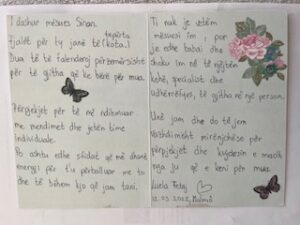 I dashur mësues Sinan.
Fjalët për ty janë të tepërta
(kota.)
Dua të të falenderoj përzemërsisht
për të gjitha që ke bërë për mua.
Përpjekjet për të më ndihmuar
me mendimet dhe jetën time
individuale.
Po ashtu edhe sfidat që më dhanë
energji për t'u përballuar me to
dhe të bëhem kjo që jam tani.
Ti nuk je vetëm
mësuesi im, por
je edhe babai dhe
shoku im në të njëjtën
kohë, specialist dhe
udhërrëfyes, të gjitha në një person.
Unë jam dhe do të jem
vazhdimisht mirënjohëse për
përpjekjet dhe kujdesin e madh
nga ju që e keni për mua.
12.03.2022, Malmö